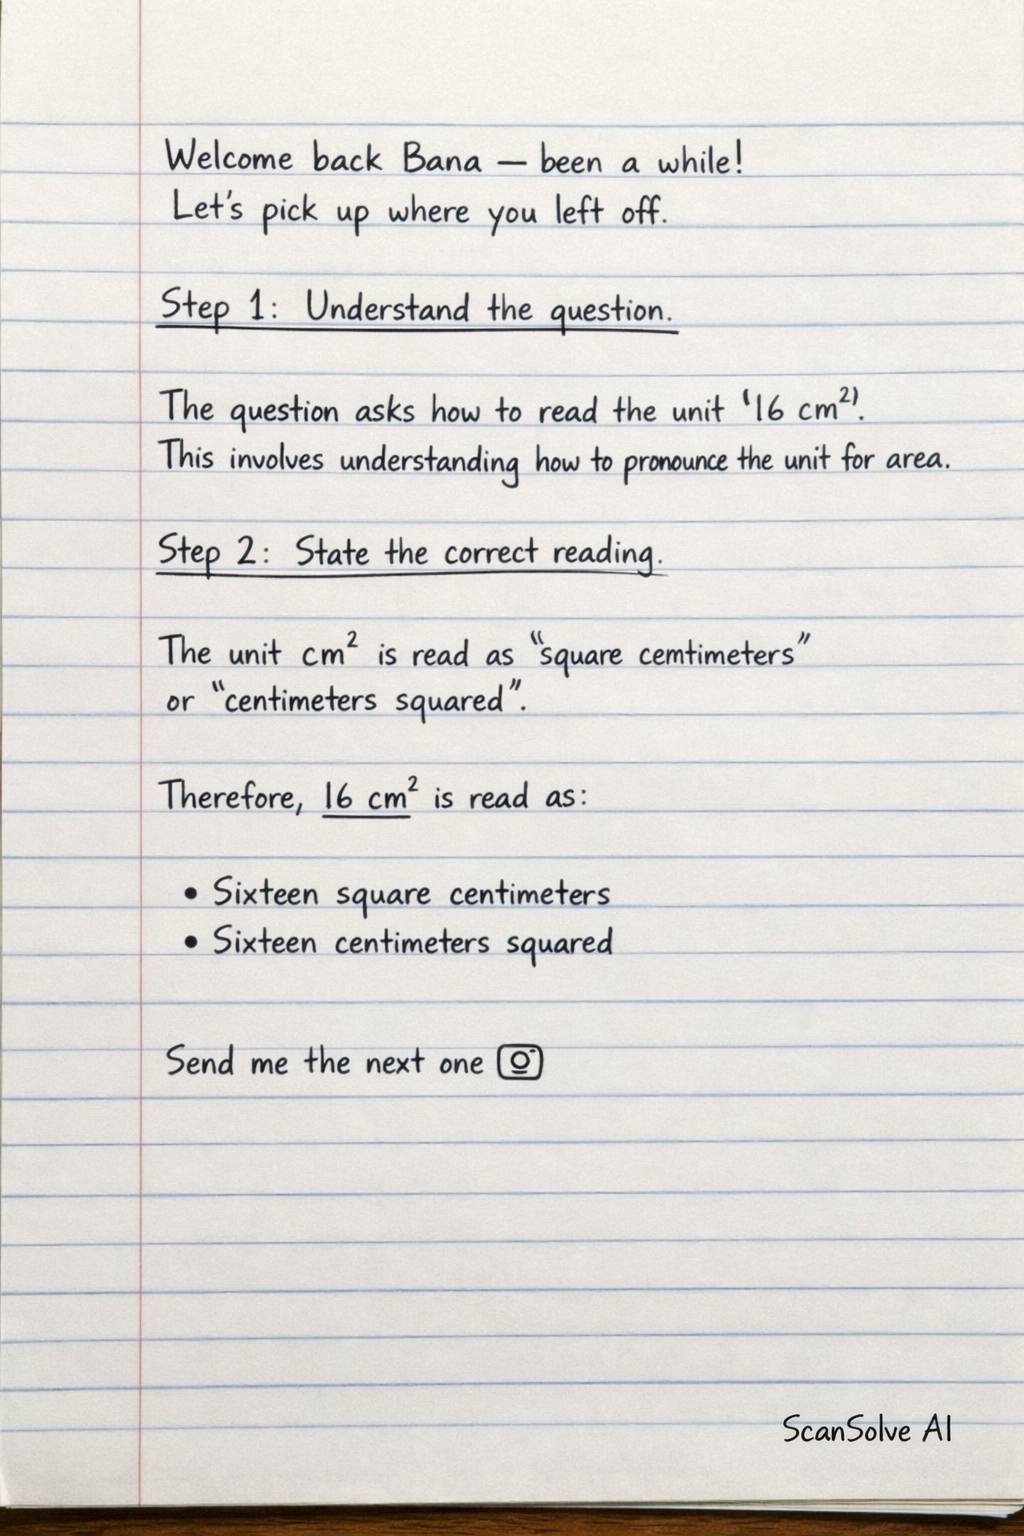 Welcome back Bana — been a while!
Let's pick up where you left off.
Step 1: Understand the question.
The question asks how to read the unit '16 cm²'.
This involves understanding how to pronounce the unit for area.
Step 2: State the correct reading.
The unit cm² is read as "square cemtimeters"
or "centimeters squared".
Therefore, 16 cm² is read as:
• Sixteen square centimeters
• Sixteen centimeters squared
Send me the next one
ScanSolve AI